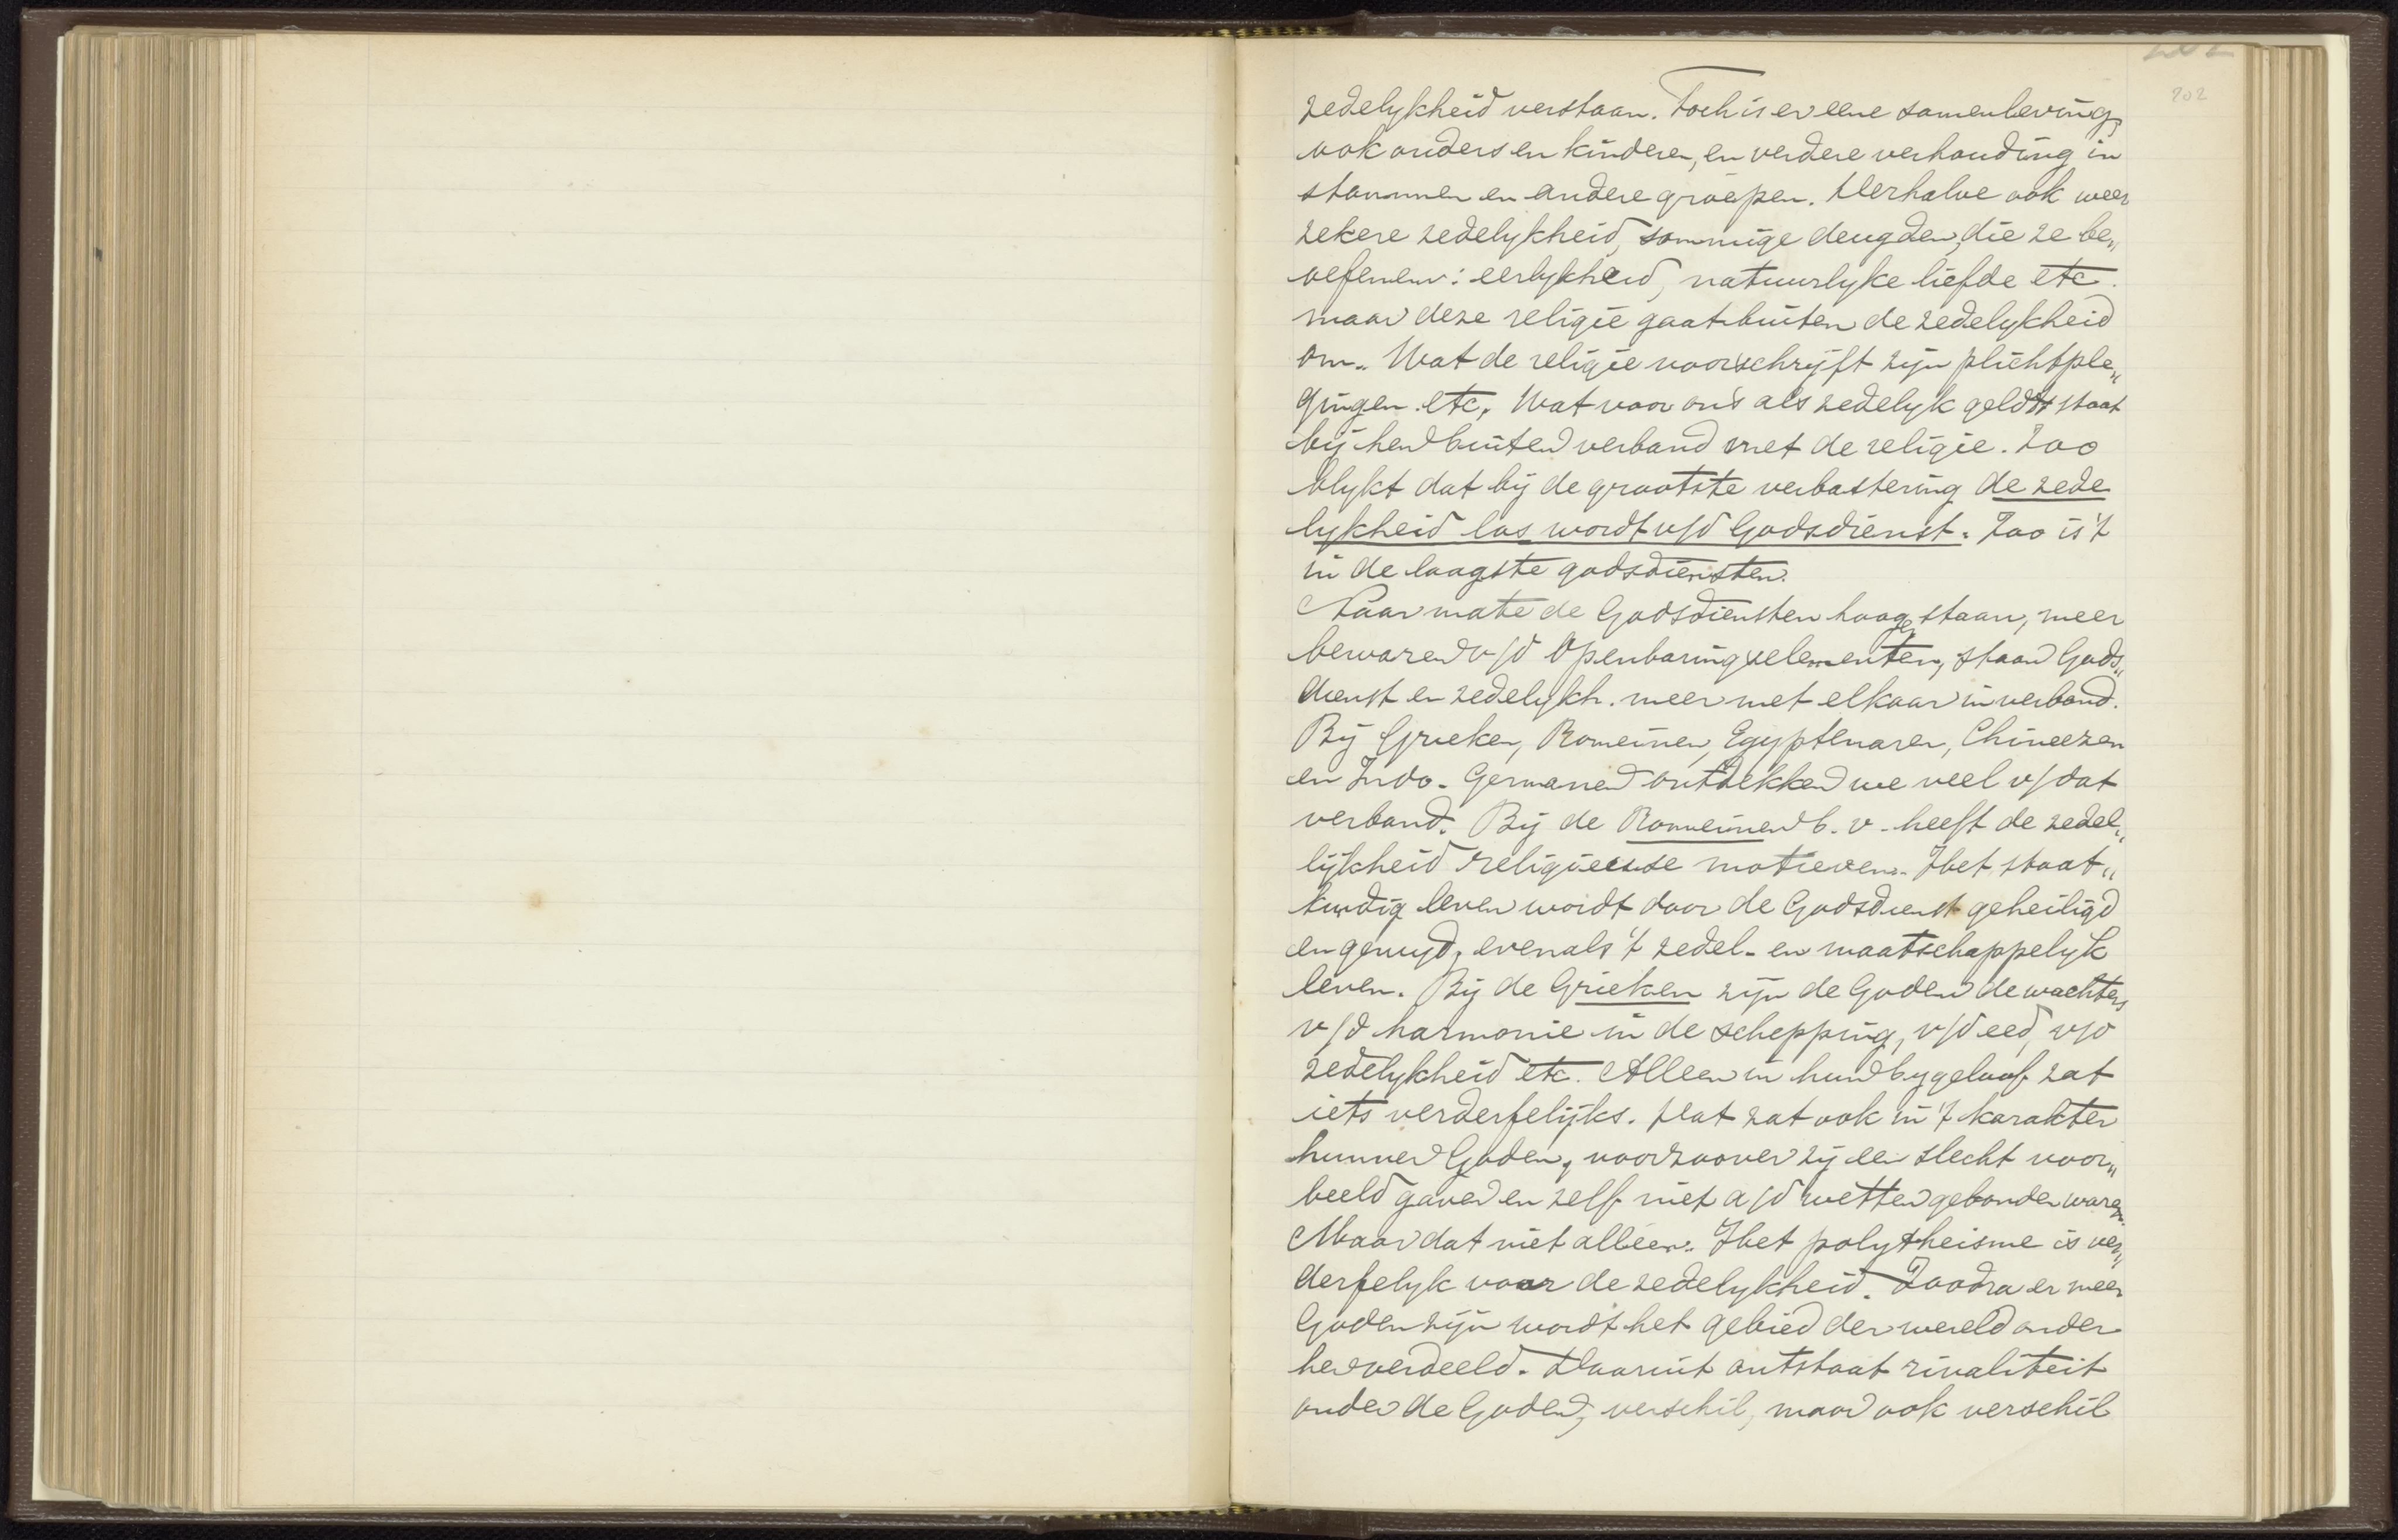 202
zedelykheid verstaan. Toch is er eene samenleving,
ook ouders en kinderen, en verdere verhouding in
stammen en andere groepen. Derhalve ook weer
zekere zedelykheid, sommige deugden, die ze be„
oefenen: eerlykheid, natuurlyke liefde etc.
maar deze religie gaat buiten de zedelykheid
om. Wat de religie voorschryft zyn plichtple„
gingen etc. Wat voor ons als zedelyk geldt staat
bij hen buiten verband met de religie. Zoo
blykt dat bij de grootste verbastering de zede
lykheid los wordt v/d Godsdienst. Zoo is 't
in de laagste godsdiensten.
Naarmate de Godsdiensten hooger staan, meer
bewaren v/d Openbaringselementen, staan Gods„
dienst en zedelykh. meer met elkaar in verband.
Bij Grieken, Romeinen, Egyptenaren, Chineezen
en Indo-Germanen ontdekken we veel v/dat
verband. Bij de Romeinen b.v. heeft de zedel„
lijkheid religieuse motieven. Het staat„
kundig leven wordt door de Godsdienst geheiligd
en gewyd, evenals 't zedel- en maatschappelyk
leven. Bij de Grieken zyn de Goden de wachters
v/d harmonie in de schepping, v/d eed, v/d
zedelykheid etc. Alleen in hun bygeloof zat
iets verderfelijks. Dat zat ook in 't karakter
hunner Goden, voorzoover zij een slecht voor„
beeld gaven en zelf niet a/d wetten gebonden waren.
Maar dat niet alleen. Het polytheisme is ver„
derfelyk voor de zedelykheid. Zoodra er meer
Goden zijn wordt het gebied der wereld onder
hen verdeeld. Daaruit ontstaat rivaliteit
onder de Goden, verschil, maar ook verschil